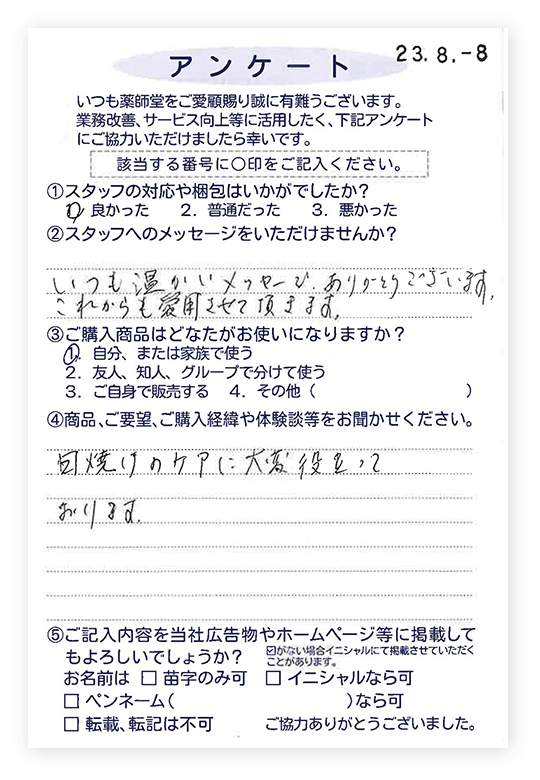 アンケート
23.8.-8
いつも薬師堂をご愛顧賜り誠に有難うございます。
業務改善、サービス向上等に活用したく、下記アンケート
にご協力いただけましたら幸いです。
該当する番号に○印をご記入ください。
①スタッフの対応や梱包はいかがでしたか?
1. 良かった 2. 普通だった 3. 悪かった
②スタッフへのメッセージをいただけませんか?
いつも温かいメッセージ、ありがとうございます。
これからも愛用させて頂きます。
③ご購入商品はどなたがお使いになりますか?
1. 自分、または家族で使う
2. 友人、知人、グループで分けて使う
3. ご自身で販売する 4. その他( )
④商品、ご要望、ご購入経緯や体験談等をお聞かせください。
日焼けのケアに大変役立って
おります。
⑤ご記入内容を当社広告物やホームページ等に掲載して
もよろしいでしょうか? ☑がない場合イニシャルにて掲載させていただく
ことがあります。
お名前は □ 苗字のみ可 □ イニシャルなら可
□ ペンネーム( )なら可
□ 転載、転記は不可 ご協力ありがとうございました。